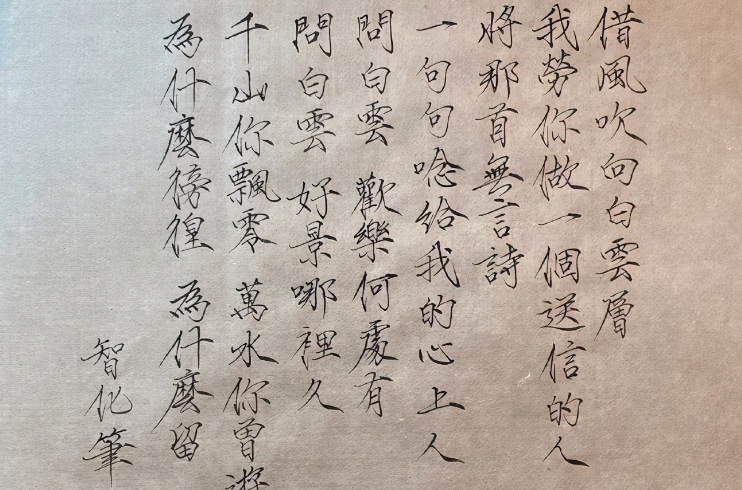 借風吹向白雲層
我勞你做一個送信的人
將那首無言詩
一句句唸給我的心上人
問白雲 歡樂何處有
問白雲 好景哪裡久
千山你飄零 萬水你曾遊
為什麼徬徨 為什麼留
智化筆